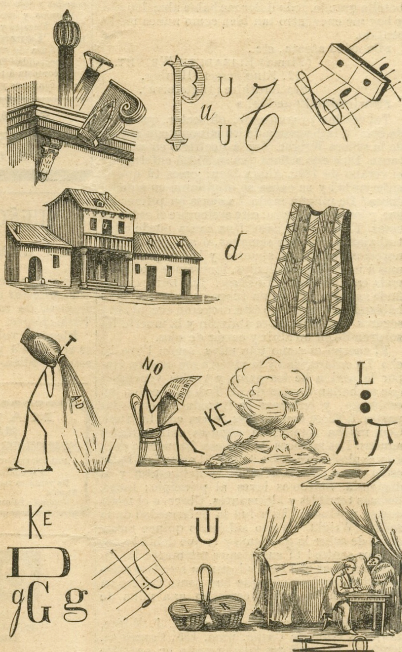 P u U U
d
T
AD
NO
KE
L
KE
D
g G g
T U